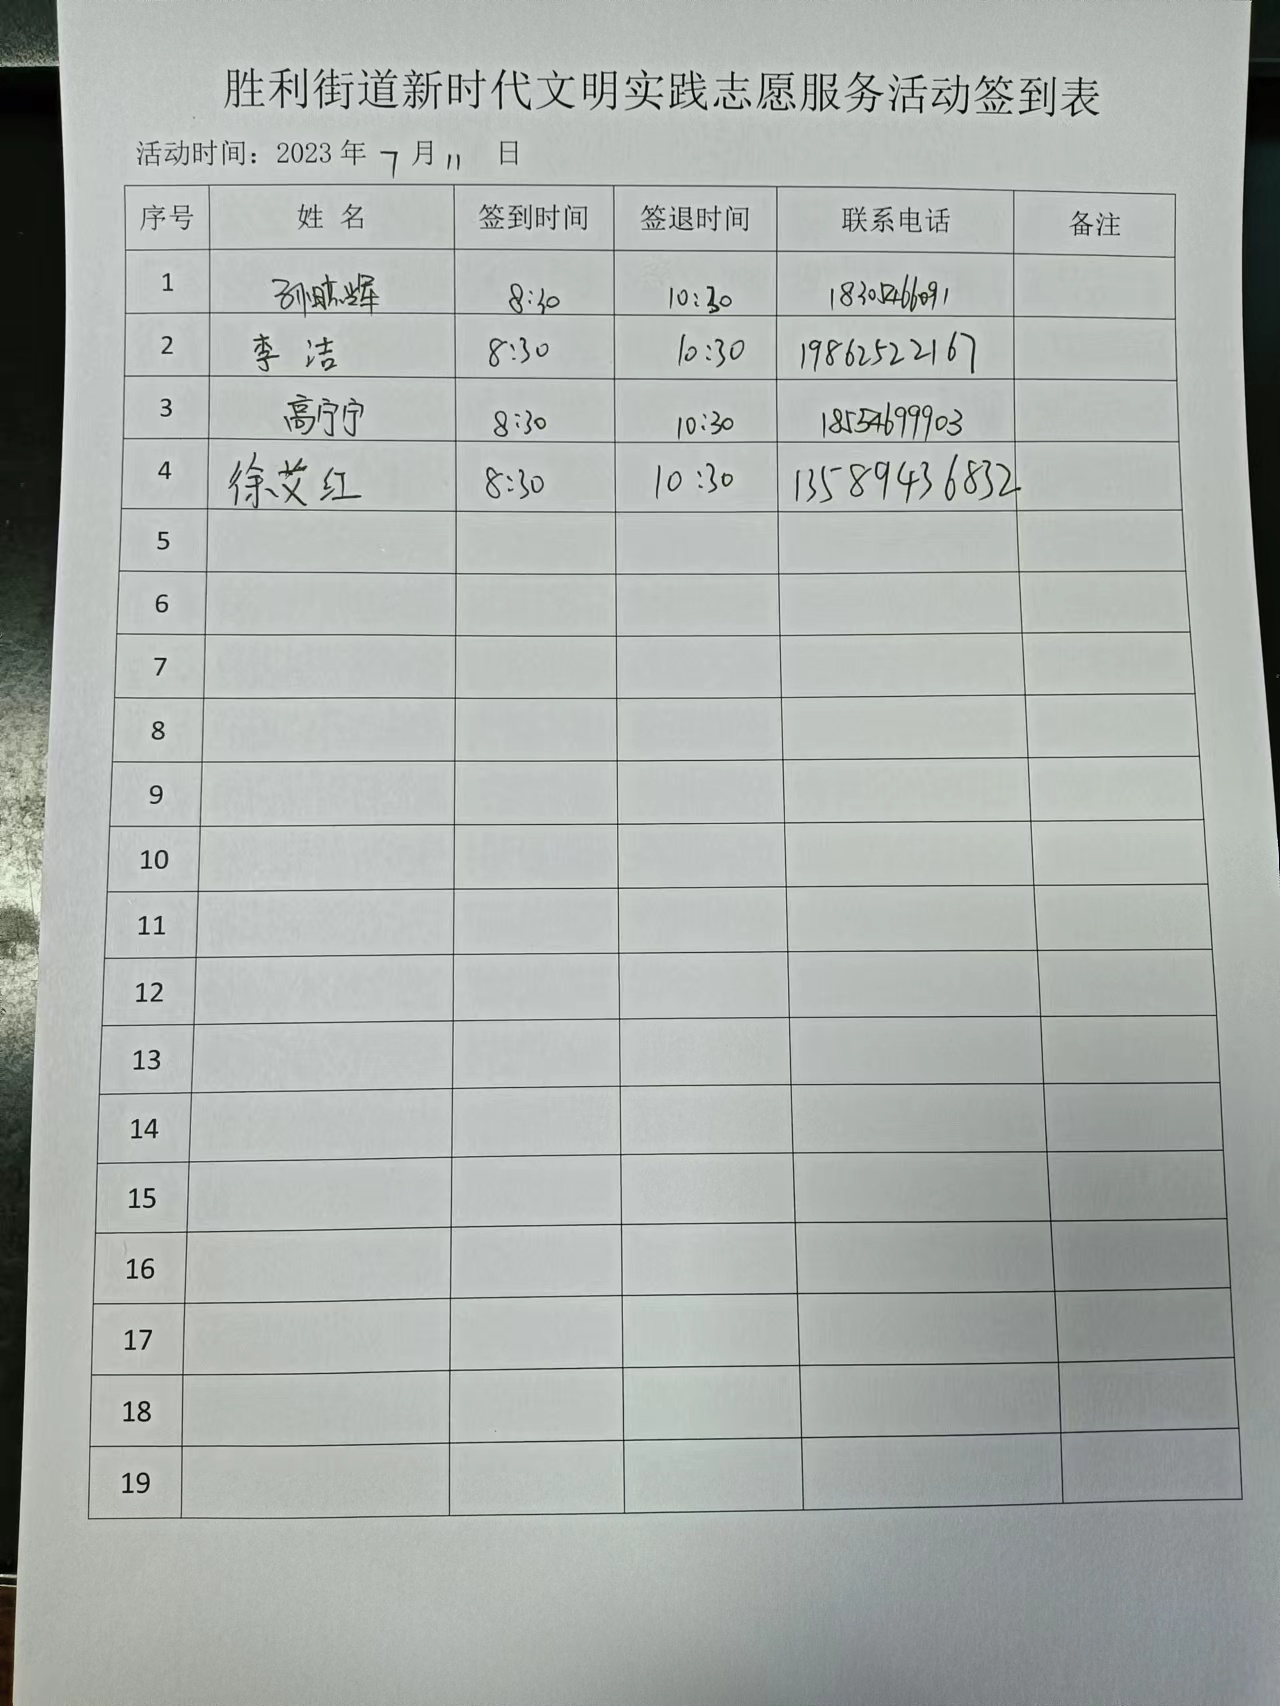 胜利街道新时代文明实践志愿服务活动签到表
活动时间：2023 年 7 月 11 日
序号 姓 名 签到时间 签退时间 联系电话 备注
1 8:30 10:30 18305466091
2 李 洁 8:30 10:30 19862522167
3 高宁宁 8:30 10:30 18554699903
4 徐艾红 8:30 10:30 13589436832
5
6
7
8
9
10
11
12
13
14
15
16
17
18
19